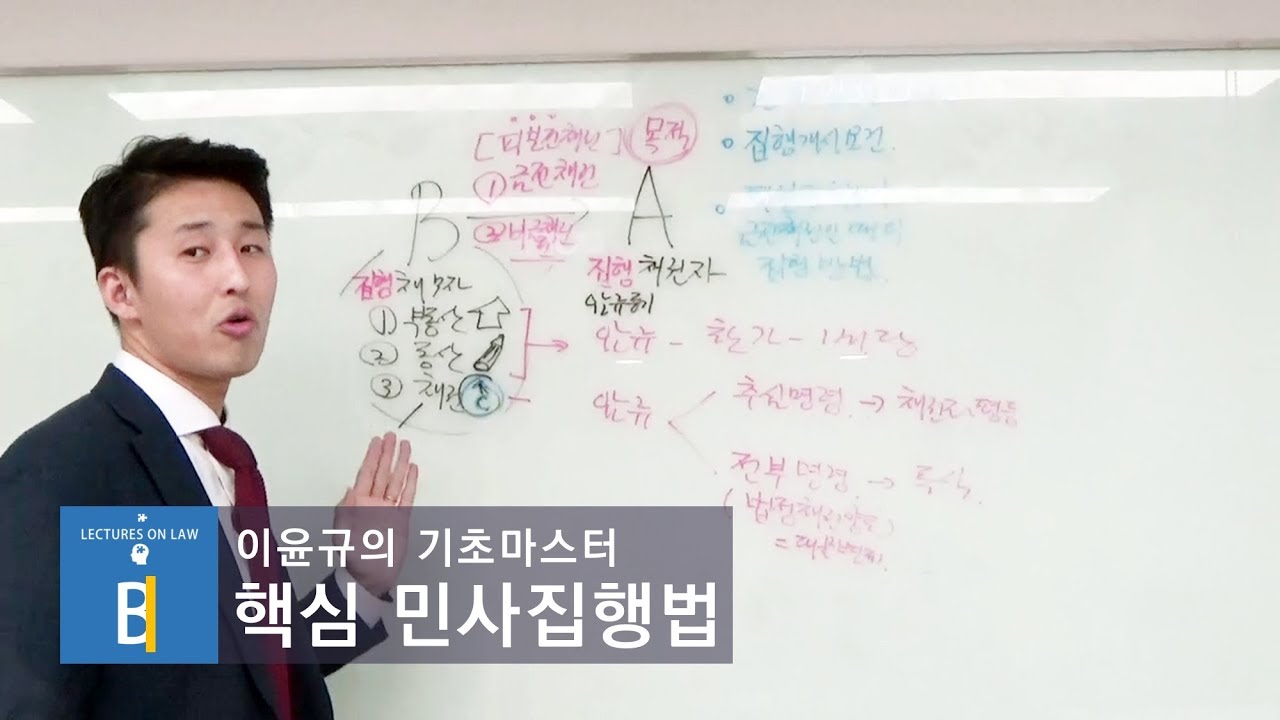 [피보전채권] 목적
① 금전채권
B A
② 비금전채권
집행개시요건.
집행채무자
집행 채권자
① 부동산
② 동산
③ 채권
압류 - 환가 - 배당
압류
추심명령 → 채권자 평등
전부명령 → 독식.
(법정채권양도)
집행 방법.
LECTURES ON LAW
B
이윤규의 기초마스터
핵심 민사집행법